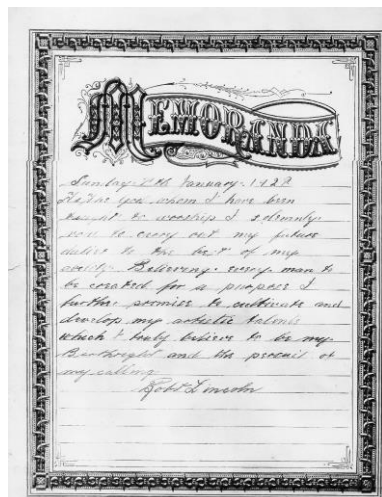 MEMORANDA
Sunday. 8th January. 1928
To you whom I have been
taught to worship I solemnly
vow to carry out my future
duties to the best of my
ability. Believing every man to
be created for a purpose I
further promise to cultivate and
develop my artistic talents
which I truly believe to be my
Birthright and the pursuit of
my calling
Robt Lincoln